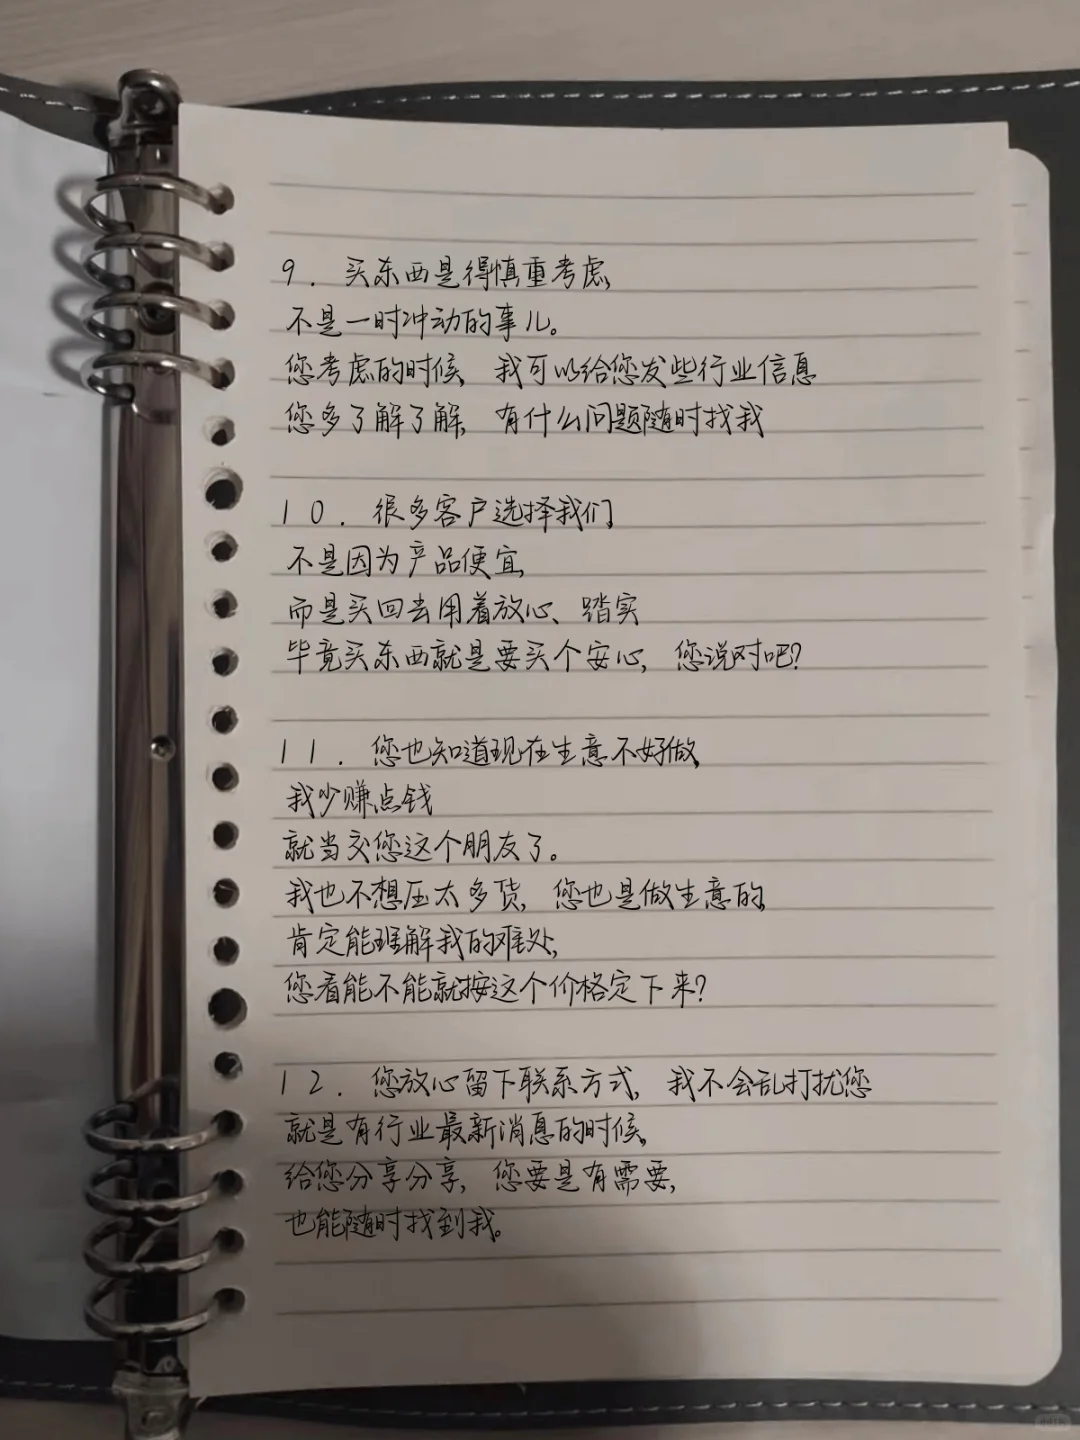 9. 买东西是得慎重考虑,
不是一时冲动的事儿。
您考虑的时候, 我可以给您发些行业信息
您多了解了解, 有什么问题随时找我
10. 很多客户选择我们
不是因为产品便宜,
而是买回去用着放心、踏实
毕竟买东西就是要买个安心, 您说对吧?
11. 您也知道现在生意不好做,
我少赚点钱
就当交您这个朋友了。
我也不想压太多货, 您也是做生意的,
肯定能理解我的难处,
您看能不能就按这个价格定下来?
12. 您放心留下联系方式, 我不会乱打扰您
就是有行业最新消息的时候,
给您分享分享, 您要是有需要,
也能随时找到我。